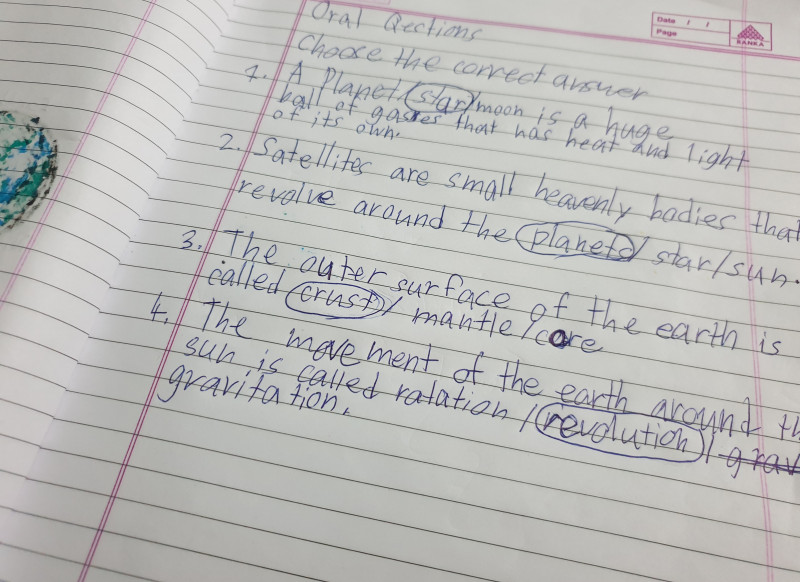 Oral Qections
Date / /
Page
RANKA
Choose the correct answer
1. A Planet/star/moon is a huge
ball of gasses that has heat and light
of its own.
2. Satellites are small heavenly bodies that
revolve around the planets/ star/sun.
3. The outer surface of the earth is
called crust/ mantle/core
4. The movement of the earth around th
sun is called ratation /revolution/ grav
gravitation.